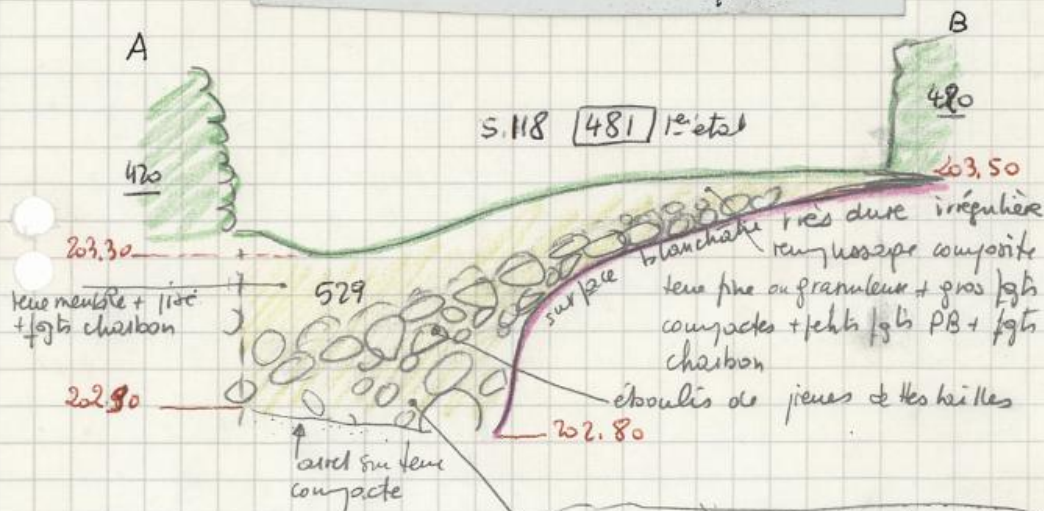 A
B
420
S.118 481 1er état
203.50
203.30
terre meuble + pisé
+ fgts charbon
529
surface blanchatre très dure irrégulière
remplissage composite
terre fine ou granuleuse + gros fgts
compactes + petits fgts PB + fgts
charbon
éboulis de pierres de ttes tailles
202.80
arret sur terre
compacte